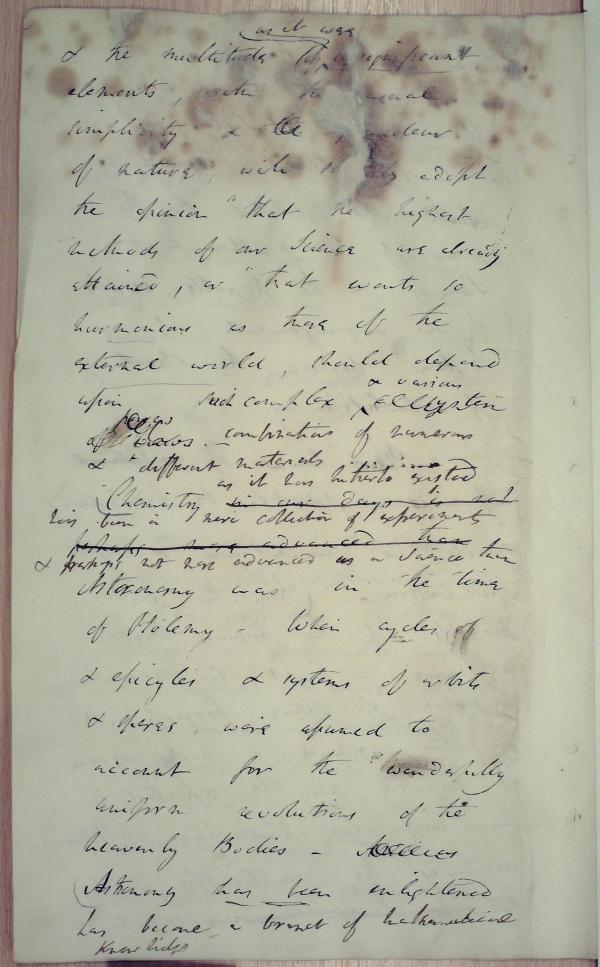 as it were
& the multitude of insignificant
elements, with the usual
simplicity & the grandeur
of nature, will
adopt
the opinion "that the highest
methods of our Science are already
attained, or "that events so
harmonious as those of the
external world, should depend
upon such complex & various
combinations of numerous
& "different materials
as it has hitherto existed
Chemistry in our days is not
has been a mere collection of experiments
perhaps more advanced than
& perhaps not more advanced as a Science than
Astronomy was in the time
of Ptolemy - When cycles of
& epicycles & systems of orbits
& speres, were assumed to
account for the "wonderfully
uniform revolutions of the
heavenly Bodies -
Astronomy has been enlightened
has become a branch of mathematical
Knowledge